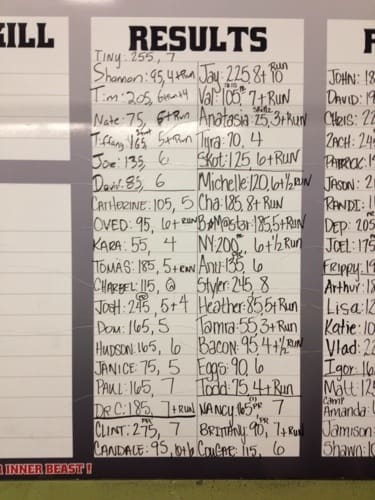 KILL
RESULTS
Tiny: 255, 7
Shannon: 95, 4+Run
Tim: 205, 6
Nate: 75, 6+Run
Tiffany: 165, 5+Run
Joe: 135, 6
David: 85, 6
CATHERINE: 105, 5
OVED: 95, 6+RUN
KARA: 55, 4
TOMAS: 185, 5+RUN
CHARBEL: 115, @
JOSH: 245, 5+4
Dom: 165, 5
HUDSON: 165, 6
JANICE: 75, 5
PAUL: 165, 7
DR C: 185, 7+RUN
CLINT: 275, 7
CANDALE: 95,
Jay: 225, 8+Run 10
Val: 105, 7+RUN
Anastasia: 25, 3+Run
Tyra: 70, 4
Skot: 125, 6+Run
Michelle: 120, 6+½RUN
Cha: 185, 8+Run
B@M@star: 185, 5+Run
NY: 200, 6+½Run
Anu: 135, 6
Styler: 245, 8
Heather: 85, 5+Run
Tamra: 55, 3+Run
Bacon: 95, 4+½RUN
Eggs: 90, 6
Todd: 75, 4+Run
NANCY: 165 PR 7
BRITTANY: 90, 7+Run
COUGAR: 115, 6
JOHN: 18
DAVID: 19
CHRIS: 22
ZACH: 24
PATRICK: 19
JASON: 21
RANDI: 11
DEP: 205
JOEL: 175
Frippy: 19
Arthur: 18
Lisa: 12
Katie: 10
Vlad: 22
Igor: 16
Matt: 12
Camp
Amanda:
Jamison:
Shawn: 10
R INNER BEAST!